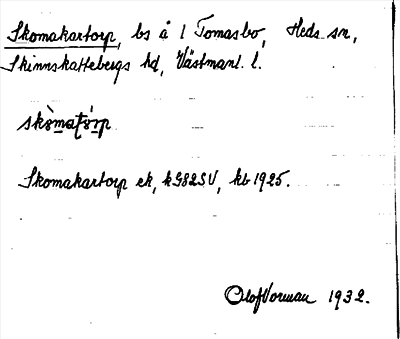 Skomakartorp, bs å 1 Tomasbo, Heds sn,
Skinnskattebergs hd, Västmanl. l.
skòmatórp
Skomakartorp ek, kG82SV, kb 1925.
Olof Vorman 1932.